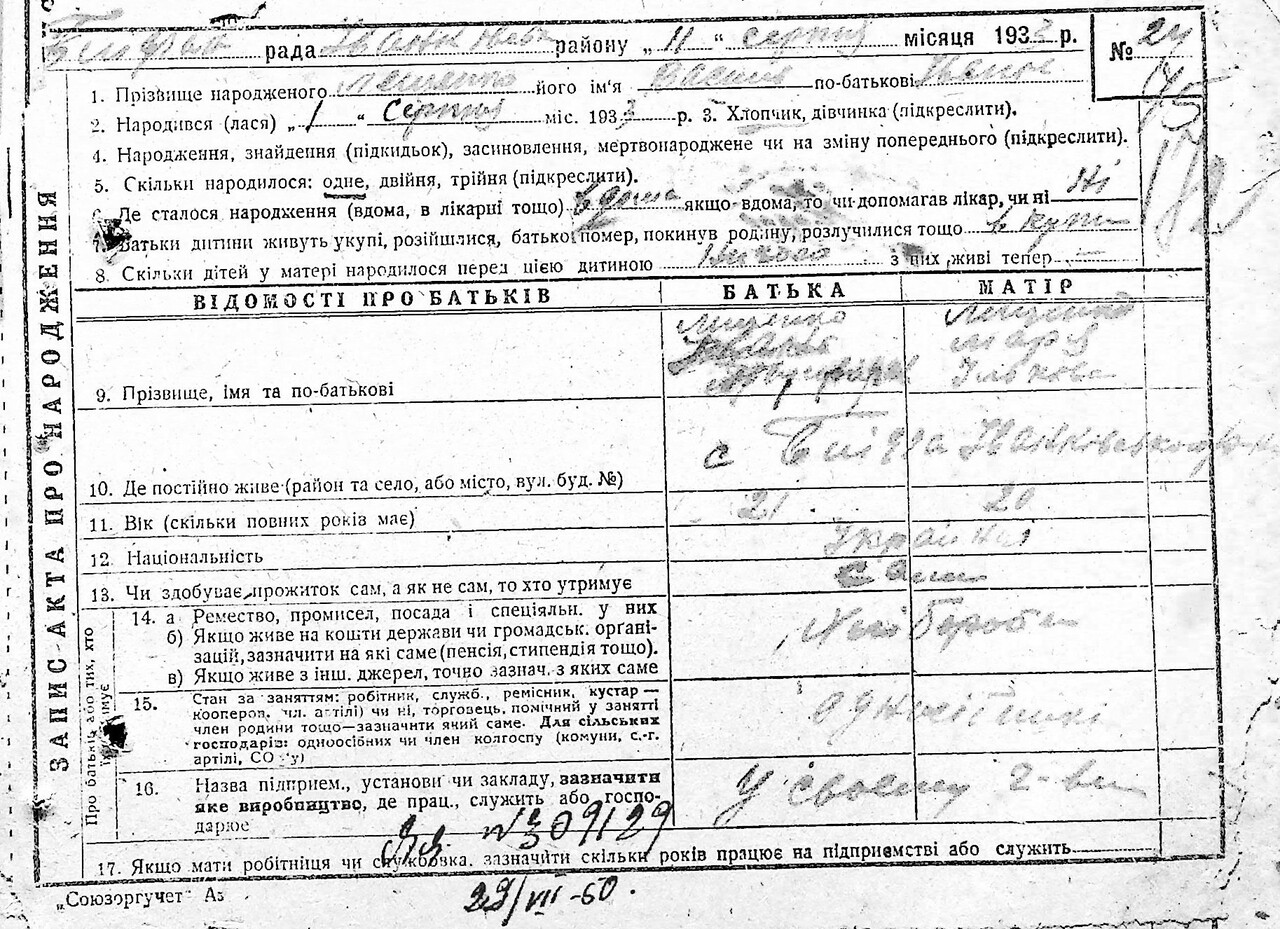 рада Іванківс району „ 11 " серпня місяця 1933 р. № 24
1. Прізвище народженого Лещенко його ім'я Васил по-батькові Іванов
2. Народився (лася) „ 1 " Серпня міс. 1933 р. 3. Хлопчик, дівчинка (підкреслити).
4. Народження, знайдення (підкидьок), засиновлення, мертвонароджене чи на зміну попереднього (підкреслити).
5. Скільки народилося: одне, двійня, трійня (підкреслити).
6. Де сталося народження (вдома, в лікарні тощо) вдома якщо вдома, то чи допомагав лікар, чи ні Ні
7. Батьки дитини живуть укупі, розійшлися, батько помер, покинув родину, розлучилися тощо
8. Скільки дітей у матері народилося перед цією дитиною з них живі тепер -
ЗАПИС АКТА ПРО НАРОДЖЕННЯ
ВІДОМОСТІ ПРО БАТЬКІВ БАТЬКА МАТІР
Лищенко Лищенко
Іван Марія
Ільківс
9. Прізвище, імя та по-батькові
с
10. Де постійно живе (район та село, або місто, вул. буд. №)
11. Вік (скільки повних років має) 21 20
12. Національність Україні
13. Чи здобуває прожиток сам, а як не сам, то хто утримує Сами
14. а Ремество, промисел, посада і спеціяльн. у них
б) Якщо живе на кошти держави чи громадськ. орґані-
зацій, зазначити на які саме (пенсія, стипендія тощо).
в) Якщо живе з інш. джерел, точно зазнач. з яких саме
Хліборобс
15. Стан за заняттям: робітник, служб., ремісник, кустар —
кооперов. чл. артілі) чи ні, торговець, помічний у занятті
член родини тощо—зазначити який саме. Для сільських
господарів: одноосібних чи член колгоспу (комуни, с.-г.
артілі, СО у)
одноосібники
16. Назва підприєм., установи чи закладу, зазначити
яке виробництво, де прац., служить або госпо-
дарює
У своєму г-ві
№309129
17. Якщо мати робітниця чи службовка. зазначити скільки років працює на підприємстві або служить
„Союзоргучет" Аз
29/VII-50.